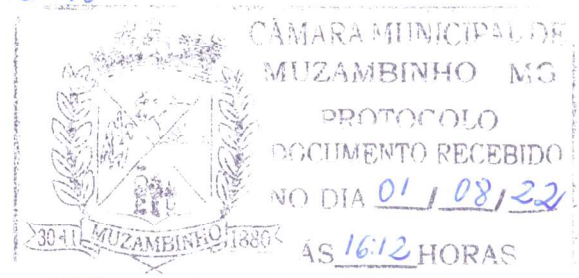 CÂMARA MUNICIPAL DE
MUZAMBINHO MG
PROTOCOLO
DOCUMENTO RECEBIDO
NO DIA 01 / 08 / 22
ÀS 16:12 HORAS
MUZAMBINHO 1880